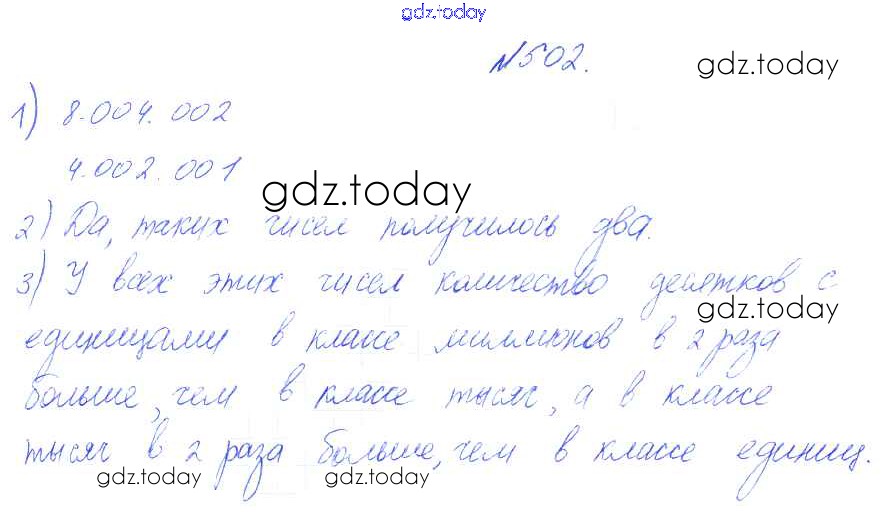 gdz.today
№502.
gdz.today
1) 8.004.002
4.002.001
gdz.today
2) Да, таких чисел получилось два.
3) У всех этих чисел количество десятков с
gdz.today
единицами в классе миллионов в 2 раза
больше, чем в классе тысяч, а в классе
тысяч в 2 раза больше, чем в классе единиц.
gdz.today
gdz.today